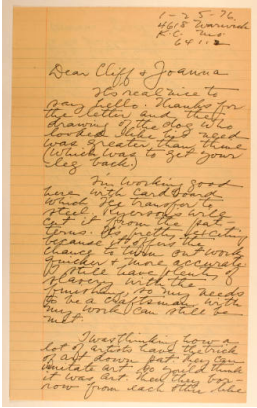 1-25-76
4618 Warwick
K.C. Mo.
64112
Dear Cliff & Joanna
It's real nice to
say hello. Thanks for
the letter and the
drawing of the dog who
looked like his need
was greater than thine
(which was to get your
leg back.)
I'm working good
here with cardboard
which I transfer to
steel. Ryerson's will
cut it from the pat-
terns. It's pretty exciting
because it offers the
chance to turn out work
quicker & more accurate.
I still have plenty of
slavery with the
finishing. So my needs
to be a craftsman with
my work can still be
met.
I was thinking how a
lot of artists have the trick
of art down pat they can
imitate art. We would think
it was art. Then they bor-
row from each other like